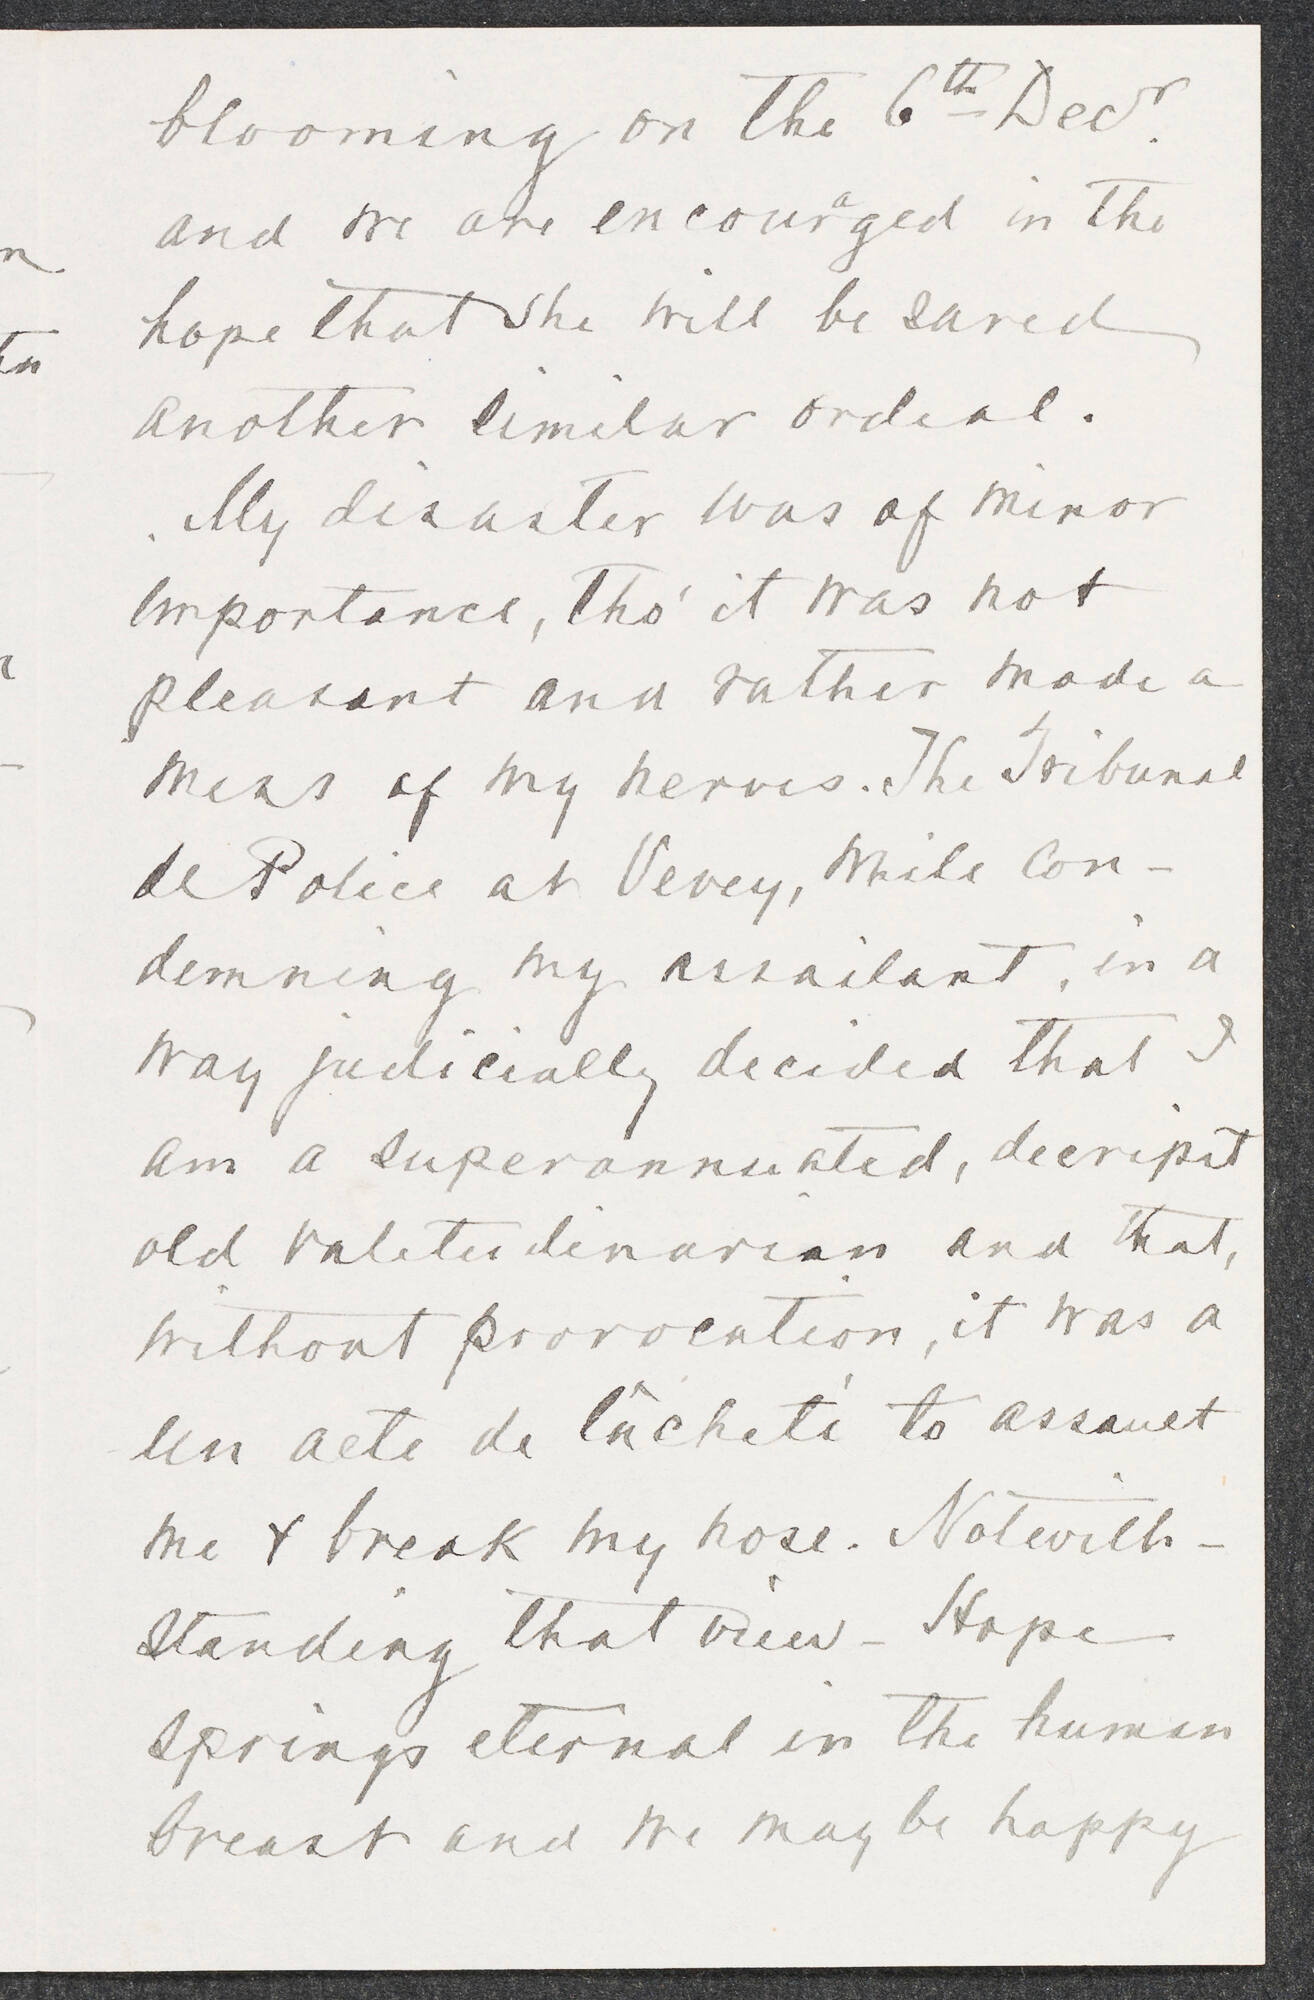 blooming on the 6th Decr.
and we are encouraged in the
hope that she will be saved
another similar ordeal.
My disaster was of minor
importance, tho' it was not
pleasant and rather made a
mess of my nerves. The Tribunal
de Police at Vevey, while con-
demning my assailant, in a
way judicially decided that I
am a superannuated, decripit
old valetudinarian and that,
without provocation, it was a
un acte de lâcheté to assault
me & break my nose. Notwith-
standing that view - Hope
springs eternal in the human
breast and we may be happy